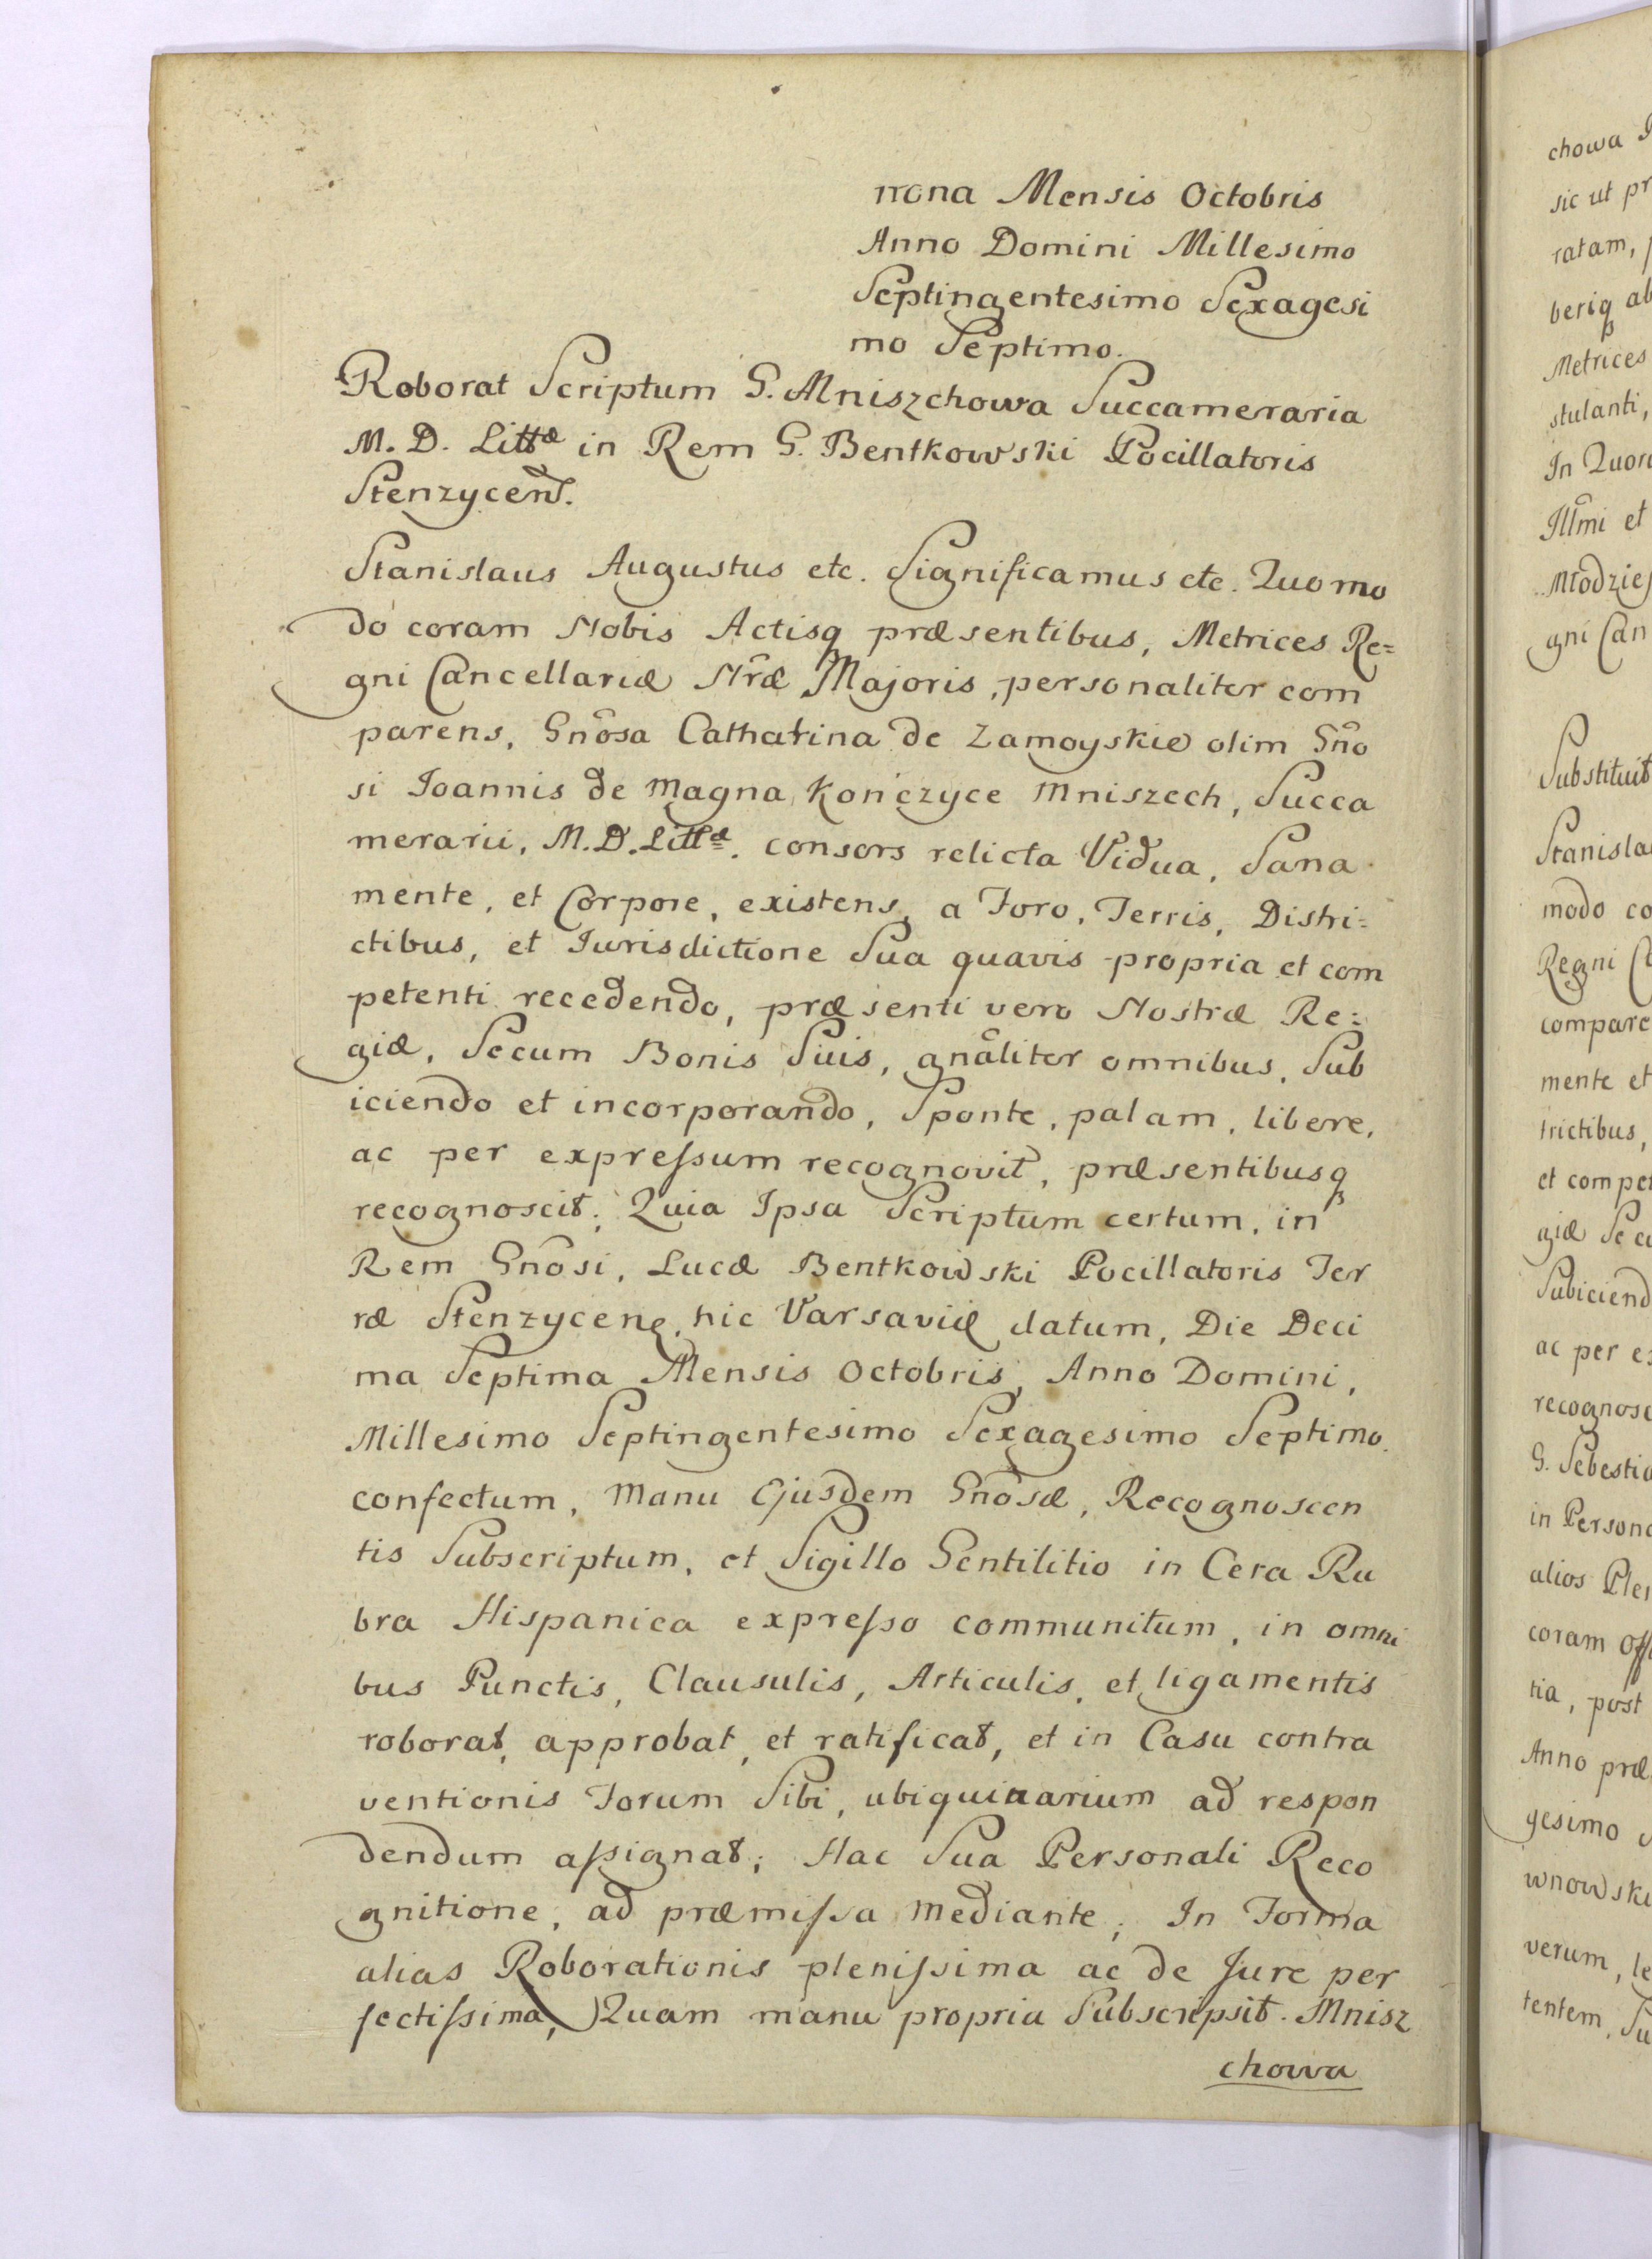 nona Mensis Octobris
Anno Domini Millesimo
Septingentesimo Sexagesi
mo Septimo.
Roborat Scriptum G. Mniszchowa Succameraria
M. D. Littæ in Rem G. Bentkowski Pocillatoris
Stenzycens.
Stanislaus Augustus etc. Significamus etc. Quomo
do coram Nobis Actisq præsentibus, Metrices Re=
gni Cancellariæ Nr̃æ Majoris, personaliter com
parens, Gñosa Catharina de Zamoyskie olim Gño
si Joannis de Magna Kończyce Mniszech, Succa
merarii, M. D. Littæ. consors relicta Vidua, Sana
mente, et Corpore, existens, a Foro, Terris, Distri=
ctibus, et Iurisdictione Sua quavis propria et com
petenti recedendo, præsenti vero Nostræ Re=
giæ, Secum Bonis Suis, gñaliter omnibus, Sub
iciendo et incorporando, Sponte, palam, libere,
ac per expreſsum recognovit, præsentibusq
recognoscit; Quia Ipsa Scriptum certum, in
Rem Gñosi, Lucæ Bentkowski Pocillatoris Ter
ræ Stenzycens, hic Varsaviæ datum, Die Deci
ma Septima Mensis Octobris, Anno Domini,
Millesimo Septingentesimo Sexagesimo Septimo.
confectum, Manu Ejusdem Gñosæ, Recognoscen
tis Subscriptum, et Sigillo Gentilitio in Cera Ru
bra Hispanica expreſso communitum, in omni
bus Punctis, Clausulis, Articulis, et ligamentis
roborat, approbat, et ratificat, et in Casu contra
ventionis Forum Sibi, ubiquinarium ad respon
dendum aſsignat; Hac Sua Personali Reco
gnitione, ad præmiſsa mediante; In Forma
alias Roborationis pleniſsima ac de Jure per
fectiſsima, Quam manu propria Subscripsit. Mnisz
chowa
chowa
sic ut pr
ratam,
beriq ab
Metrices
stulanti,
In Quor
Illm̃i et
Młodziej
gni Can
Substituit
Stanisla
modo co
Regni
compare
mente et
trictibus,
et compe
giæ Secu
Subiciend
ac per e
recognosc
G. Sebestia
in Persona
alios Ple
coram Off
tia, post
Anno præ
gesimo
wnowski
verum, le
tentem, Su